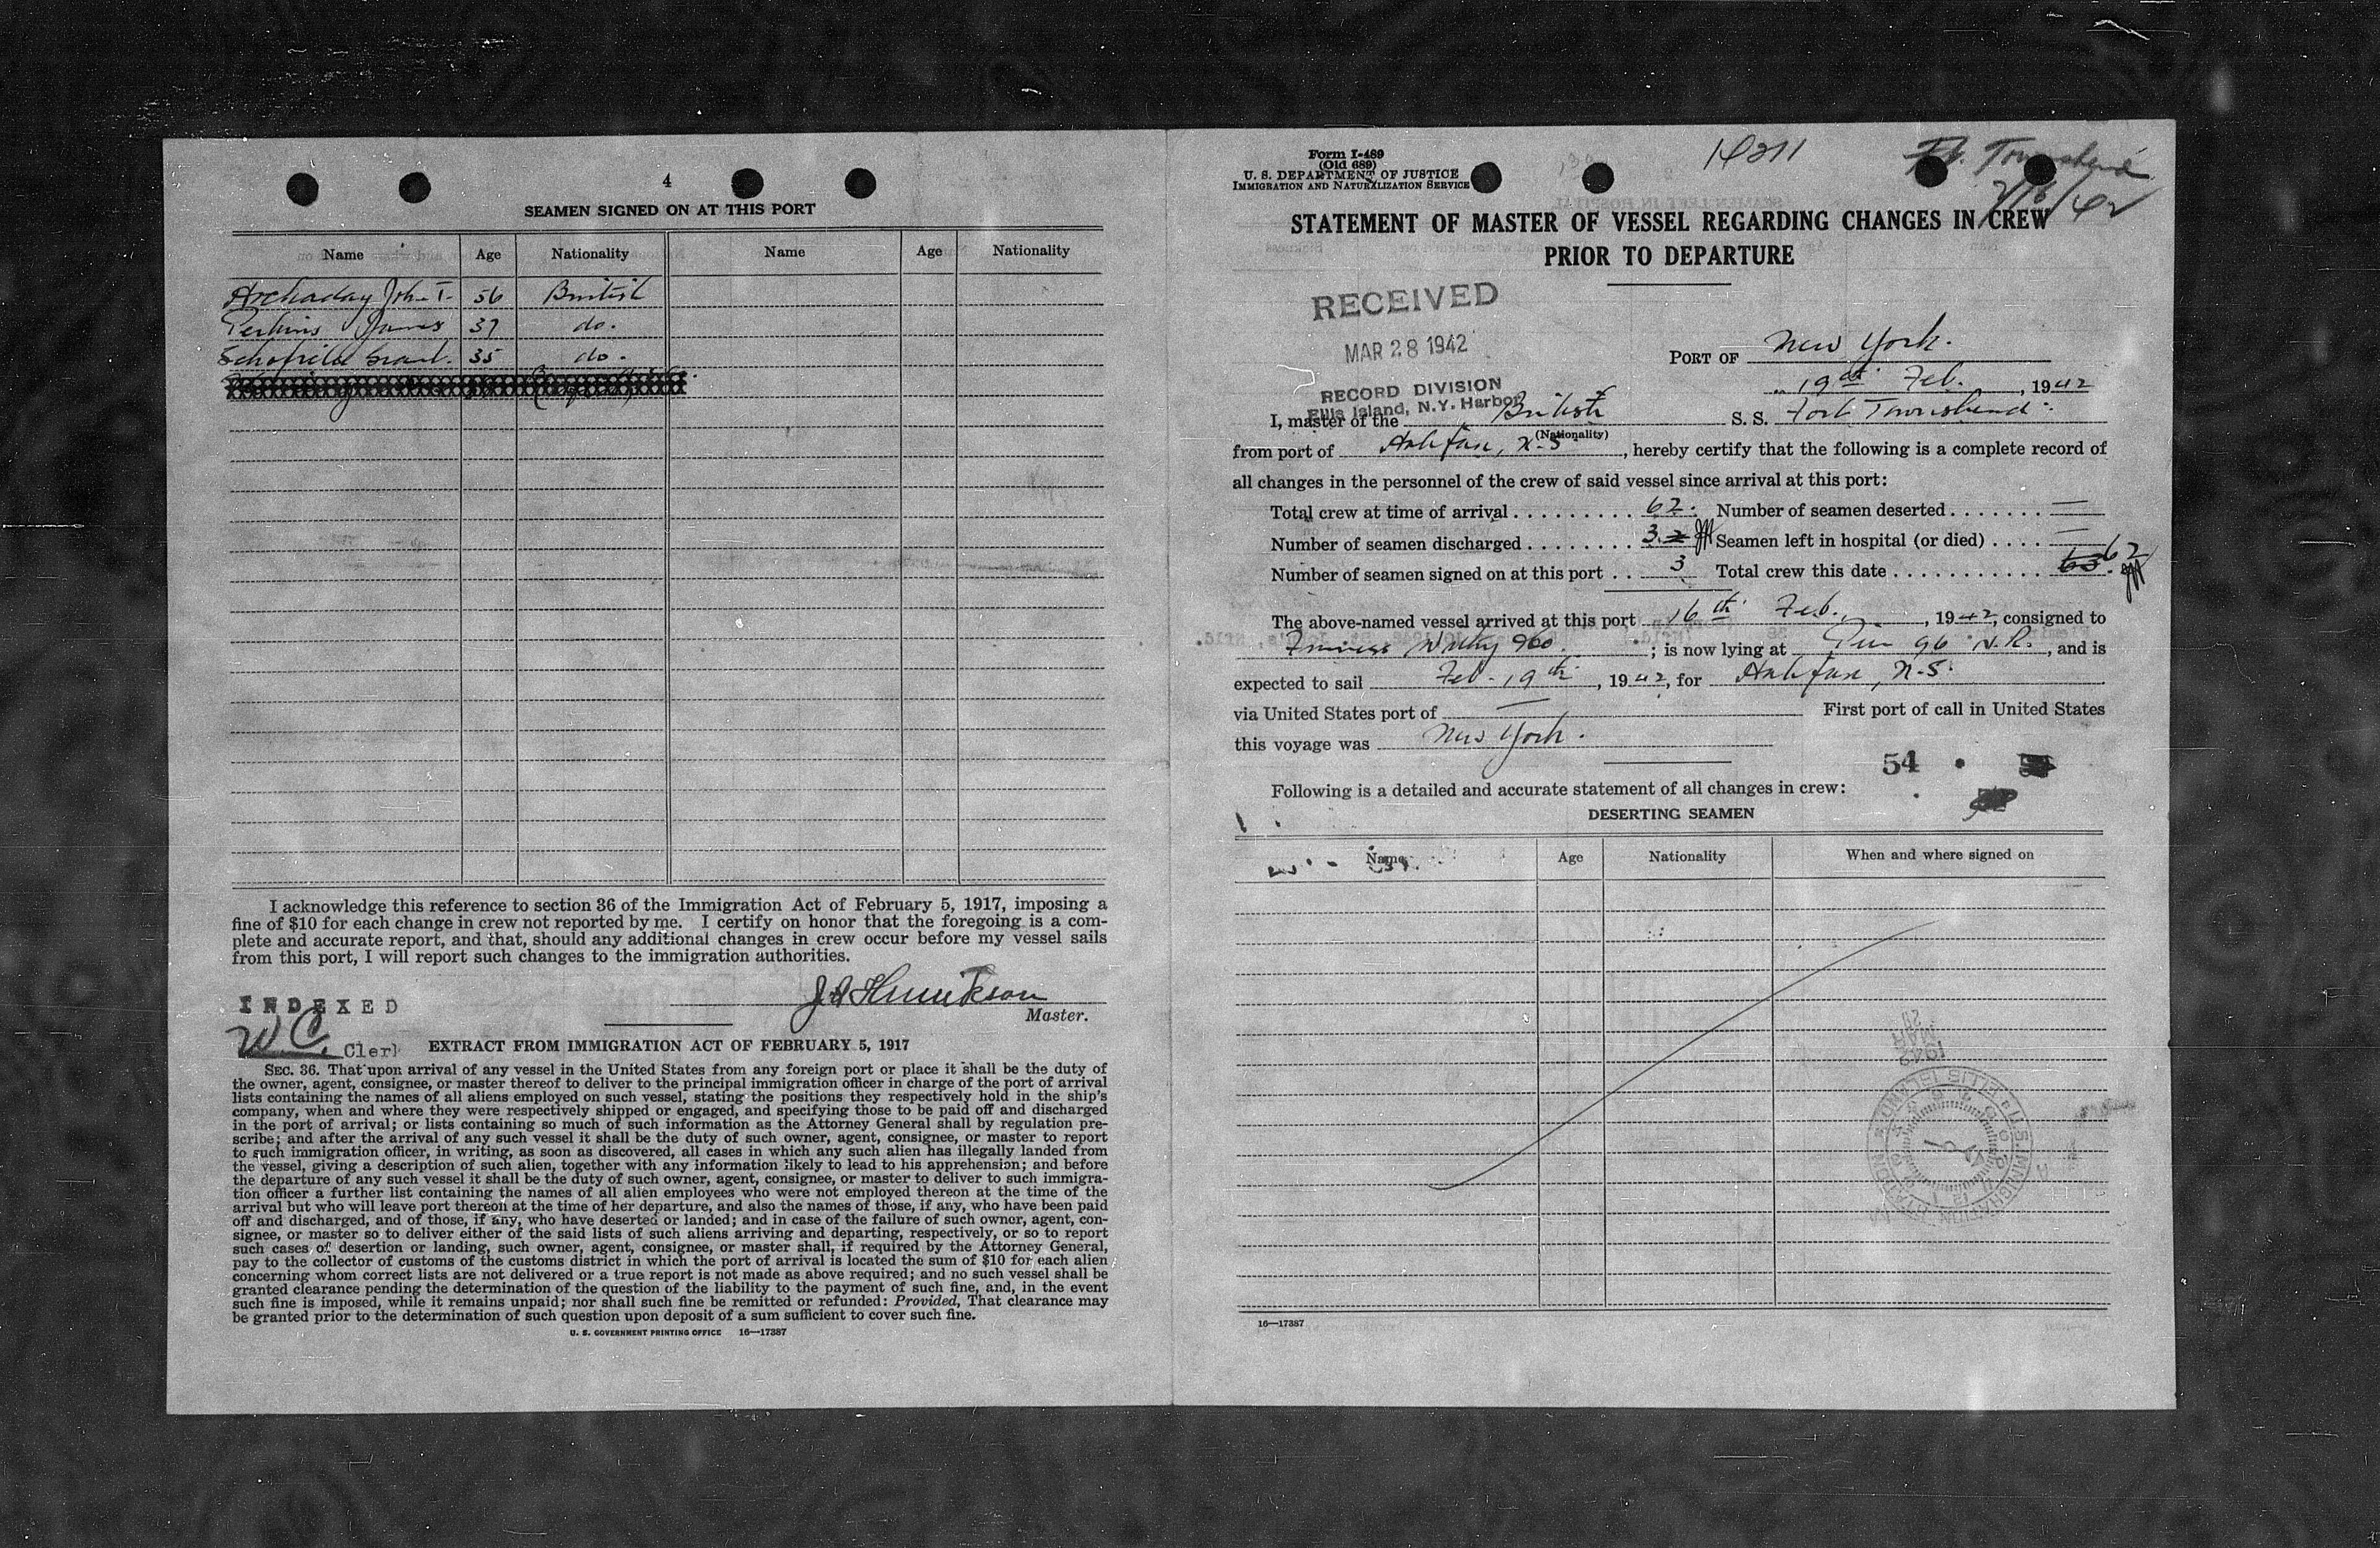 4
SEAMEN SIGNED ON AT THIS PORT
Name Age Nationality Name Age Nationality
Archaday John T. 56 British
Perkins James 37 do.
35 do.
I acknowledge this reference to section 36 of the Immigration Act of February 5, 1917, imposing a
fine of $10 for each change in crew not reported by me. I certify on honor that the foregoing is a com-
plete and accurate report, and that, should any additional changes in crew occur before my vessel sails
from this port, I will report such changes to the immigration authorities.
Master.
INDEXED
W.C. Clerk
EXTRACT FROM IMMIGRATION ACT OF FEBRUARY 5, 1917
SEC. 36. That upon arrival of any vessel in the United States from any foreign port or place it shall be the duty of
the owner, agent, consignee, or master thereof to deliver to the principal immigration officer in charge of the port of arrival
lists containing the names of all aliens employed on such vessel, stating the positions they respectively hold in the ship's
company, when and where they were respectively shipped or engaged, and specifying those to be paid off and discharged
in the port of arrival; or lists containing so much of such information as the Attorney General shall by regulation pre-
scribe; and after the arrival of any such vessel it shall be the duty of such owner, agent, consignee, or master to report
to such immigration officer, in writing, as soon as discovered, all cases in which any such alien has illegally landed from
the vessel, giving a description of such alien, together with any information likely to lead to his apprehension; and before
the departure of any such vessel it shall be the duty of such owner, agent, consignee, or master to deliver to such immigra-
tion officer a further list containing the names of all alien employees who were not employed thereon at the time of the
arrival but who will leave port thereon at the time of her departure, and also the names of those, if any, who have been paid
off and discharged, and of those, if any, who have deserted or landed; and in case of the failure of such owner, agent, con-
signee, or master so to deliver either of the said lists of such aliens arriving and departing, respectively, or so to report
such cases of desertion or landing, such owner, agent, consignee, or master shall, if required by the Attorney General,
pay to the collector of customs of the customs district in which the port of arrival is located the sum of $10 for each alien
concerning whom correct lists are not delivered or a true report is not made as above required; and no such vessel shall be
granted clearance pending the determination of the question of the liability to the payment of such fine, and, in the event
such fine is imposed, while it remains unpaid; nor shall such fine be remitted or refunded: Provided, That clearance may
be granted prior to the determination of such question upon deposit of a sum sufficient to cover such fine.
U. S. GOVERNMENT PRINTING OFFICE 16—17387
Form I-489
(Old 689)
U. S. DEPARTMENT OF JUSTICE
IMMIGRATION AND NATURALIZATION SERVICE
14211
Ft. Townshend
2/16/42
STATEMENT OF MASTER OF VESSEL REGARDING CHANGES IN CREW
PRIOR TO DEPARTURE
RECEIVED
MAR 28 1942
RECORD DIVISION
Ellis Island, N.Y. Harbor
PORT OF New York.
19th Feb., 1942
I, master of the British S. S. Fort Townshend
(Nationality)
from port of Halifax, N.S, hereby certify that the following is a complete record of
all changes in the personnel of the crew of said vessel since arrival at this port:
Total crew at time of arrival 62. Number of seamen deserted —
Number of seamen discharged 3. 2 Seamen left in hospital (or died) —
Number of seamen signed on at this port 3 Total crew this date 63 62
The above-named vessel arrived at this port 16th Feb., 1942, consigned to
Furness Withy; is now lying at Pier 96 N.R., and is
expected to sail Feb. 19th, 1942, for Halifax, N.S.
via United States port of — First port of call in United States
this voyage was New York.
54
Following is a detailed and accurate statement of all changes in crew:
DESERTING SEAMEN
Name Age Nationality When and where signed on
16—17387